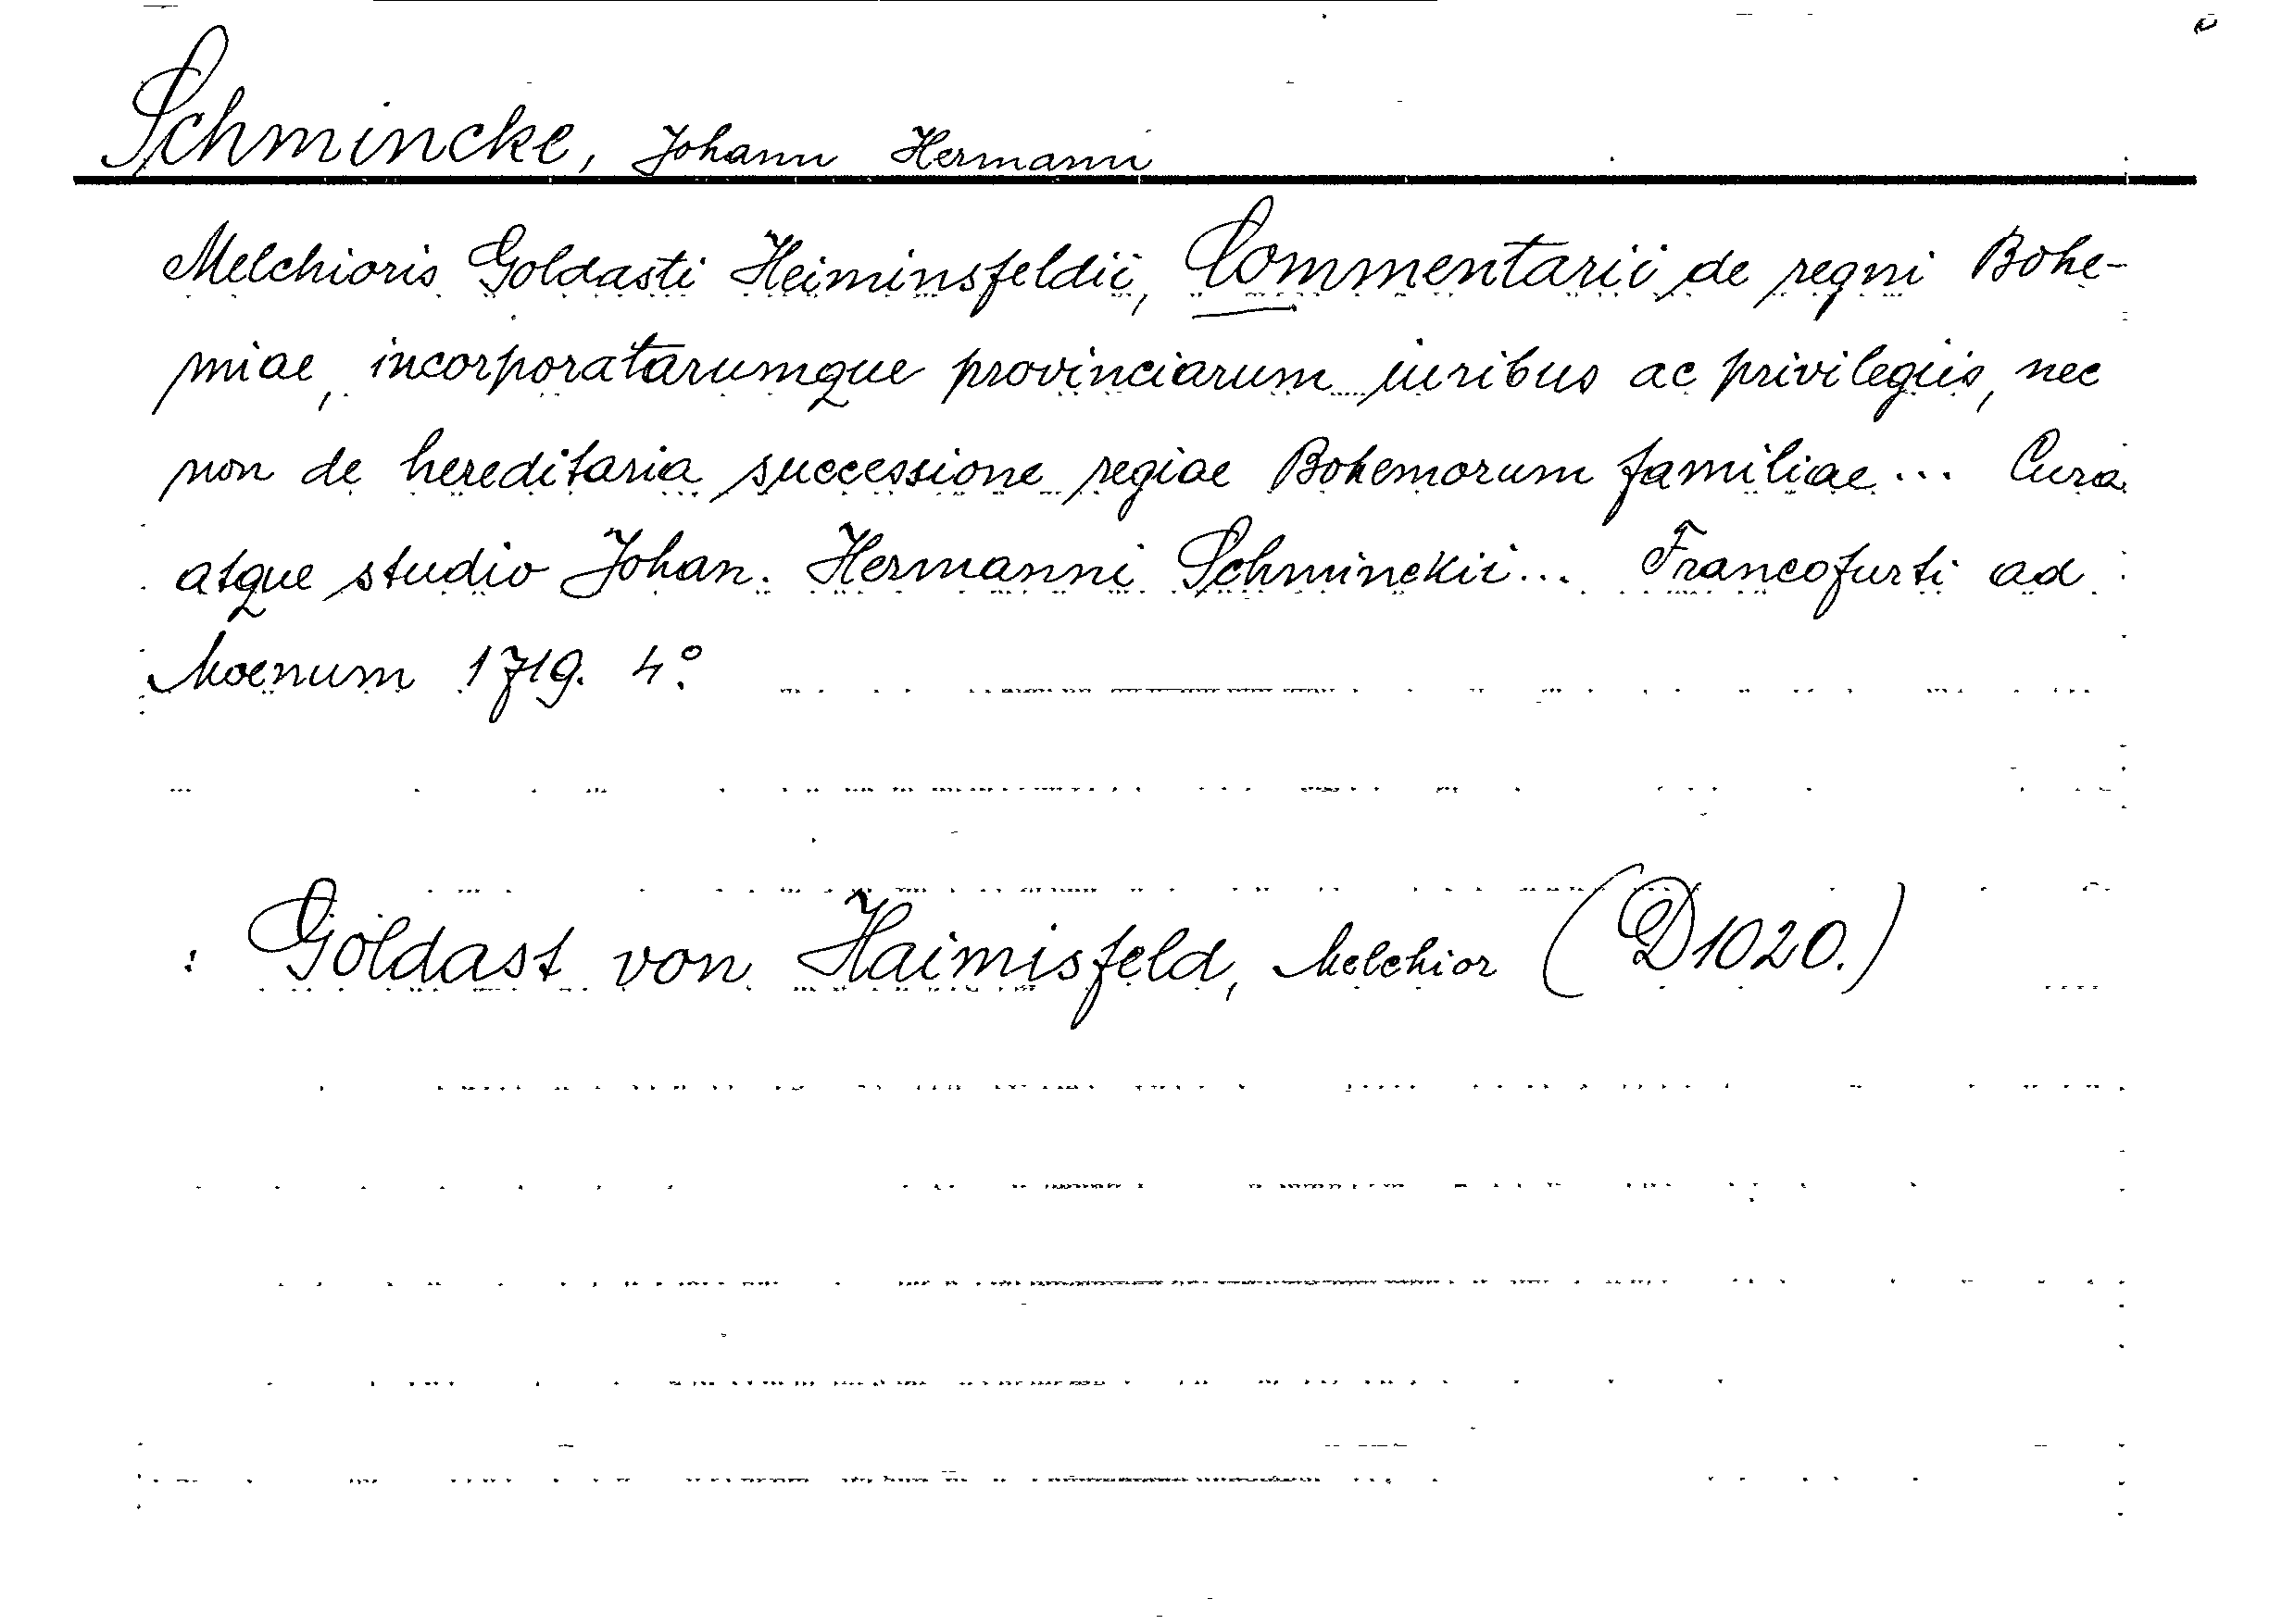 Schmincke, Johann Hermann
Melchioris Goldasti Heiminsfeldii, Commentarii de regni Bohe-
miae, incorporatarumque provinciarum iuribus ac privilegiis, nec
non de hereditaria successione regiae Bohemorum familiae... Cura
atque studio Johan. Hermanni Schminckii... Francofurti ad
Moenum 1719. 4°.
: Goldast von Haimisfeld, Melchior (D1020.)